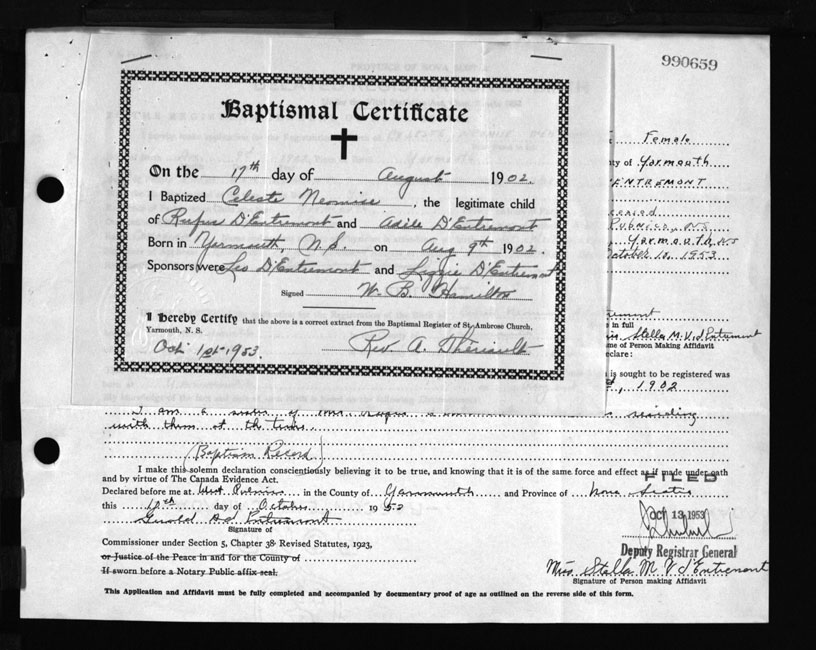 990659
Baptismal Certificate
On the 17th day of August 1902.
I Baptized Celeste Neomise, the legitimate child
of Rufus D'Entremont and Adéle D'Entremont
Born in Yarmouth, N.S. on Aug 9th 1902.
Sponsors were Leo D'Entremont and Lizzie D'Entremont
Signed W. B. Hamilton
I Hereby Certify that the above is a correct extract from the Baptismal Register of St. Ambrose Church,
Yarmouth, N. S.
Oct 1st 1953. Rev. A. Thériault
Female
ty of Yarmouth
ENTREMONT
Pubnico, N.S.
Yarmouth, NS
October 10, 1953
in full
Stella M. V. d'Entremont
me of Person Making Affidavit
eclare:
is sought to be registered was
1902
I am a sister of residing
with them at the time.
(Baptism Record)
I make this solemn declaration conscientiously believing it to be true, and knowing that it is of the same force and effect as if made under oath
and by virtue of The Canada Evidence Act.
Declared before me at West Pubnico in the County of Yarmouth and Province of Nova Scotia
this 10th day of October 1953
d'Entremont
Signature of
Commissioner under Section 5, Chapter 38 Revised Statutes, 1923,
or Justice of the Peace in and for the County of
If sworn before a Notary Public affix seal.
FILED
OCT 13 1953
Deputy Registrar General
Miss Stella M. V. d'Entremont
Signature of Person making Affidavit
This Application and Affidavit must be fully completed and accompanied by documentary proof of age as outlined on the reverse side of this form.